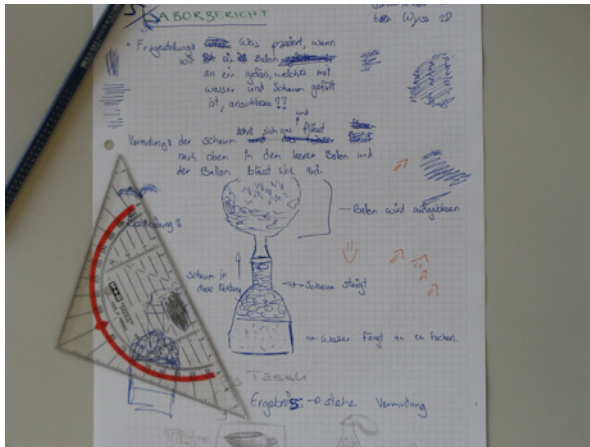 LABORBERICHT
Wyss 2D
• Fragestellung: Was passiert, wenn
wir ein Balon
an ein gefäss, welches mit
wasser und Schaum gefüllt
ist, anschliess ??
dehnt sich aus und
Vermutung: der Schaum
nach oben in den leeren Balon und
der Ballon bläst sich auf.
Balon wird aufgeblasen
schaum in
diese Richtung
Schaum steigt
Wasser fängt an zu kochen
Tassen
Ergebnis: → siehe Vermutung